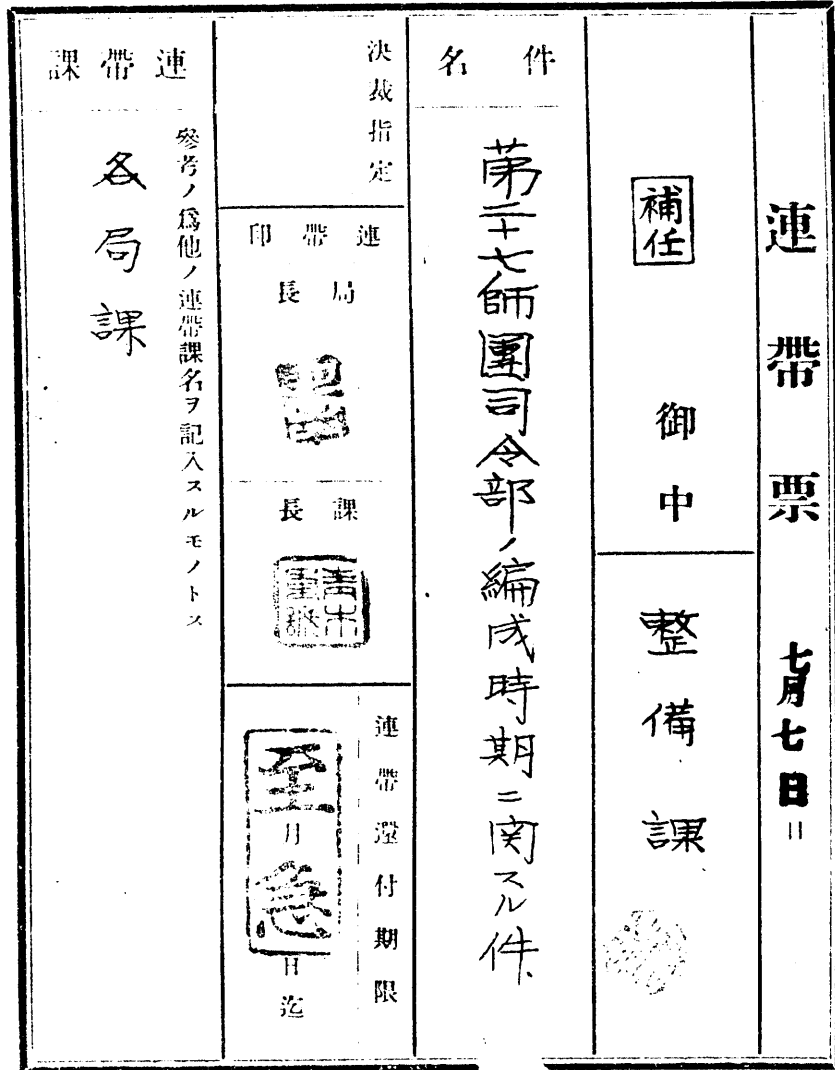 連帶票
七月七日
日
補任
御中
整備課
件名
第二十七師團司令部ノ編成時期ニ関スル件
決裁指定
連帶印
局長
課長
青木
連帶還付期限
至急
月
日迄
連帶課
參考ノ爲他ノ連帶課名ヲ記入スルモノトス
各局課